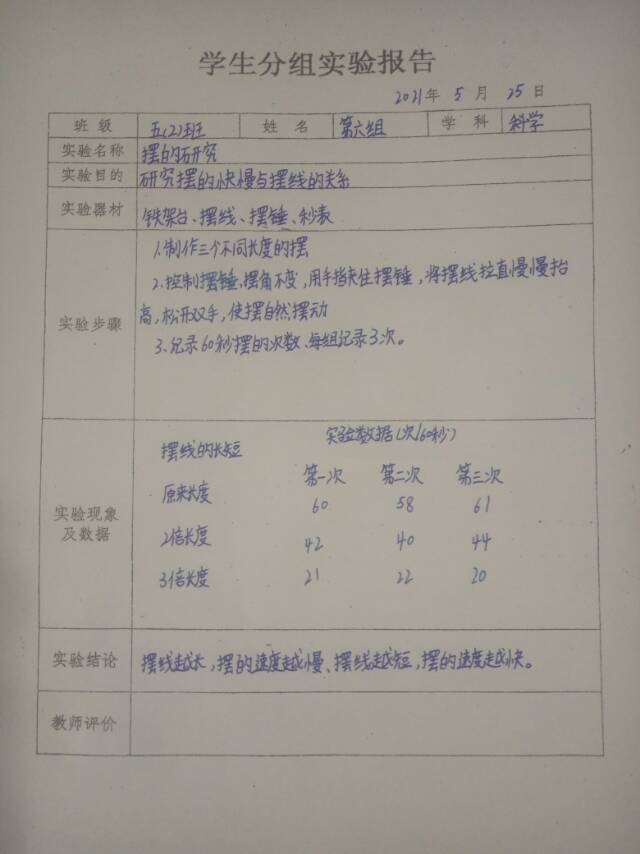 学生分组实验报告
2021年 5 月 25 日
班 级 五(2)班 姓 名 第六组 学 科 科学
实验名称 摆的研究
实验目的 研究摆的快慢与摆线的关系
实验器材 铁架台、摆线、摆锤、秒表
实验步骤
1.制作三个不同长度的摆
2.控制摆锤、摆角不变,用手指夹住摆锤,将摆线拉直慢慢抬
高,松开双手,使摆自然摆动
3.记录60秒摆的次数、每组记录3次。
实验现象
及数据
实验数据(次/60秒)
摆线的长短 第一次 第二次 第三次
原来长度 60 58 61
2倍长度 42 40 44
3倍长度 21 22 20
实验结论 摆线越长,摆的速度越慢、摆线越短,摆的速度越快。
教师评价